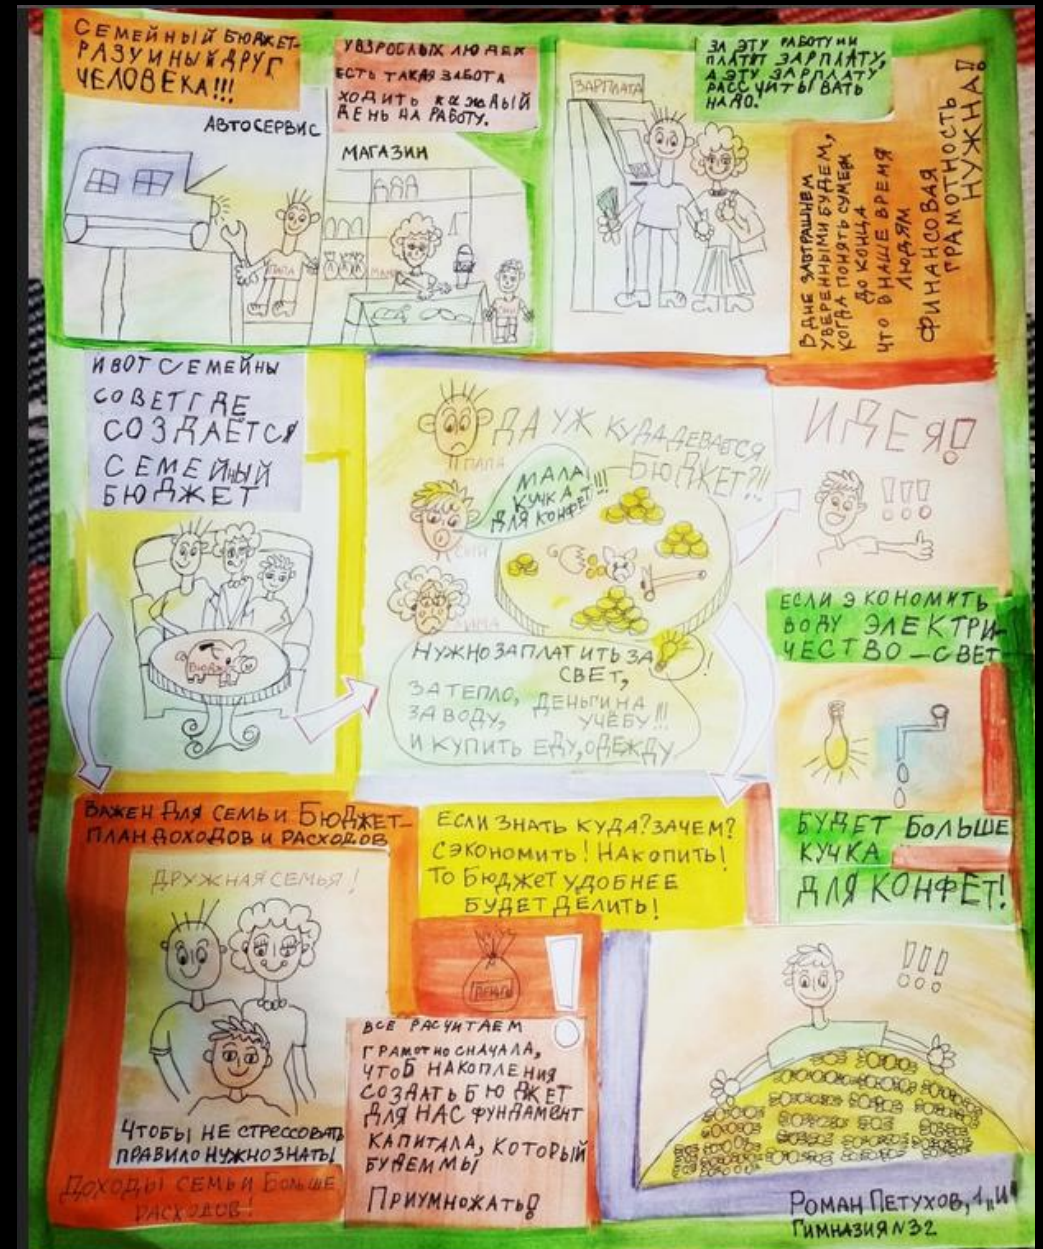 СЕМЕЙНЫЙ БЮДЖЕТ-
РАЗУМНЫЙ ДРУГ
ЧЕЛОВЕКА!!!
У ВЗРОСЛЫХ ЛЮДЕЙ
ЕСТЬ ТАКАЯ ЗАБОТА
ХОДИТЬ КАЖДЫЙ
ДЕНЬ НА РАБОТУ.
АВТОСЕРВИС
МАГАЗИН
ПАПА
МАМА
ЗАРПЛАТА
ЗА ЭТУ РАБОТУ ИМ
ПЛАТЯТ ЗАРПЛАТУ,
А ЭТУ ЗАРПЛАТУ
РАССЧИТЫВАТЬ
НАДО.
В ДНЕ ЗАВТРАШНЕМ
УВЕРЕННЫМИ БУДЕМ,
КОГДА ПОНЯТЬ СУМЕЕМ
ДО КОНЦА
ЧТО В НАШЕ ВРЕМЯ
ЛЮДЯМ
ФИНАНСОВАЯ
ГРАМОТНОСТЬ
НУЖНА!
И ВОТ СЕМЕЙНЫ
СОВЕТ ГДЕ
СОЗДАЁТСЯ
СЕМЕЙНЫЙ
БЮДЖЕТ
БЮДЖЕТ
ДА УЖ КУДА ДЕВАЕТСЯ
БЮДЖЕТ?!!!
ПАПА
МАЛА!
КУЧКА!!!
ДЛЯ КОНФЕТ
СЫН
МАМА
НУЖНО ЗАПЛАТИТЬ ЗА
СВЕТ,
ЗА ТЕПЛО, ДЕНЬГИ НА
ЗА ВОДУ, УЧЁБУ!!!
И КУПИТЬ ЕДУ, ОДЕЖДУ
!
ИДЕЯ!
!!!
ЕСЛИ ЭКОНОМИТЬ
ВОДУ ЭЛЕКТРИ-
ЧЕСТВО-СВЕТ
БУДЕТ БОЛЬШЕ
КУЧКА
ДЛЯ КОНФЕТ!
ВАЖЕН ДЛЯ СЕМЬИ БЮДЖЕТ-
ПЛАН ДОХОДОВ И РАСХОДОВ
ДРУЖНАЯ СЕМЬЯ!
ЧТОБЫ НЕ СТРЕССОВАТЬ
ПРАВИЛО НУЖНО ЗНАТЬ!
ДОХОДЫ СЕМЬИ БОЛЬШЕ
РАСХОДОВ!
ЕСЛИ ЗНАТЬ КУДА? ЗАЧЕМ?
СЭКОНОМИТЬ! НАКОПИТЬ!
ТО БЮДЖЕТ УДОБНЕЕ
БУДЕТ ДЕЛИТЬ!
!
ВСЕ РАСЧИТАЕМ
ГРАМОТНО СНАЧАЛА,
ЧТОБ НАКОПЛЕНИЯ
СОЗДАТЬ БЮДЖЕТ
ДЛЯ НАС ФУНДАМЕНТ
КАПИТАЛА, КОТОРЫЙ
БУДЕМ МЫ
ПРИУМНОЖАТЬ!
!!!
РОМАН ПЕТУХОВ, 1 „И"
ГИМНАЗИЯ N 32